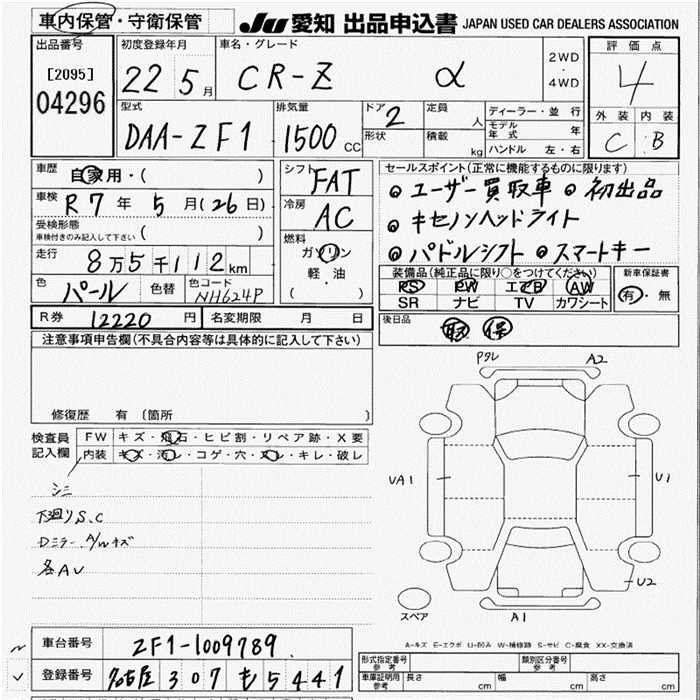 車内保管・守衛保管
JU 愛知 出品申込書 JAPAN USED CAR DEALERS ASSOCIATION
出品番号
[2095]
04296
初度登録年月
22 5月
車名・グレード
CR-Z α
2WD
・
4WD
評価点
4
外装 内装
C B
型式
DAA-ZF1
排気量
1500 CC
ドア 2
形状
定員 人
積載 kg
ディーラー・並行
モデル年式 年
ハンドル 左・右
車歴
自家用・( )
車検
R7年 5月(26日)
受検形態
車検付きのみ記入して下さい ( )
走行
8万5千112km
色 パール 色替 色コード NH624P
シフト
FAT
冷房
AC
燃料
ガソリン
軽・油
( )
セールスポイント(正常に機能するものに限ります)
◎ユーザー買取車 ◎初出品
◎キセノンヘッドライト
◎パドルシフト ◎スマートキー
装備品(純正品に限り○をつけてください)
PS PW エアB AW
SR ナビ TV カワシート
新車保証書
有・無
R券 12220 円 名変期限 月 日
後日品
取 保
注意事項申告欄(不具合内容等は具体的に記入して下さい)
修復歴 有 (箇所 )
検査員記入欄
FW キズ・飛石・ヒビ割・リペア跡・X要
内装 キズ・汚レ・コゲ・穴・スレ・キレ・破レ
シミ
下廻りS.C
Dミラー.A/Wキズ
各AU
PタレA2
UA1
U1
U2
スペア
A1
A-キズ E-エクボ U-凹み W-補修跡 S-サビ C-腐食 XX-交換済
車台番号 ZF1-1009789
登録番号 名古屋 307 も 5441
形式指定番号 参考
類別区分番号 参考
車庫証明用 参考 長さ cm 幅 cm 高さ cm